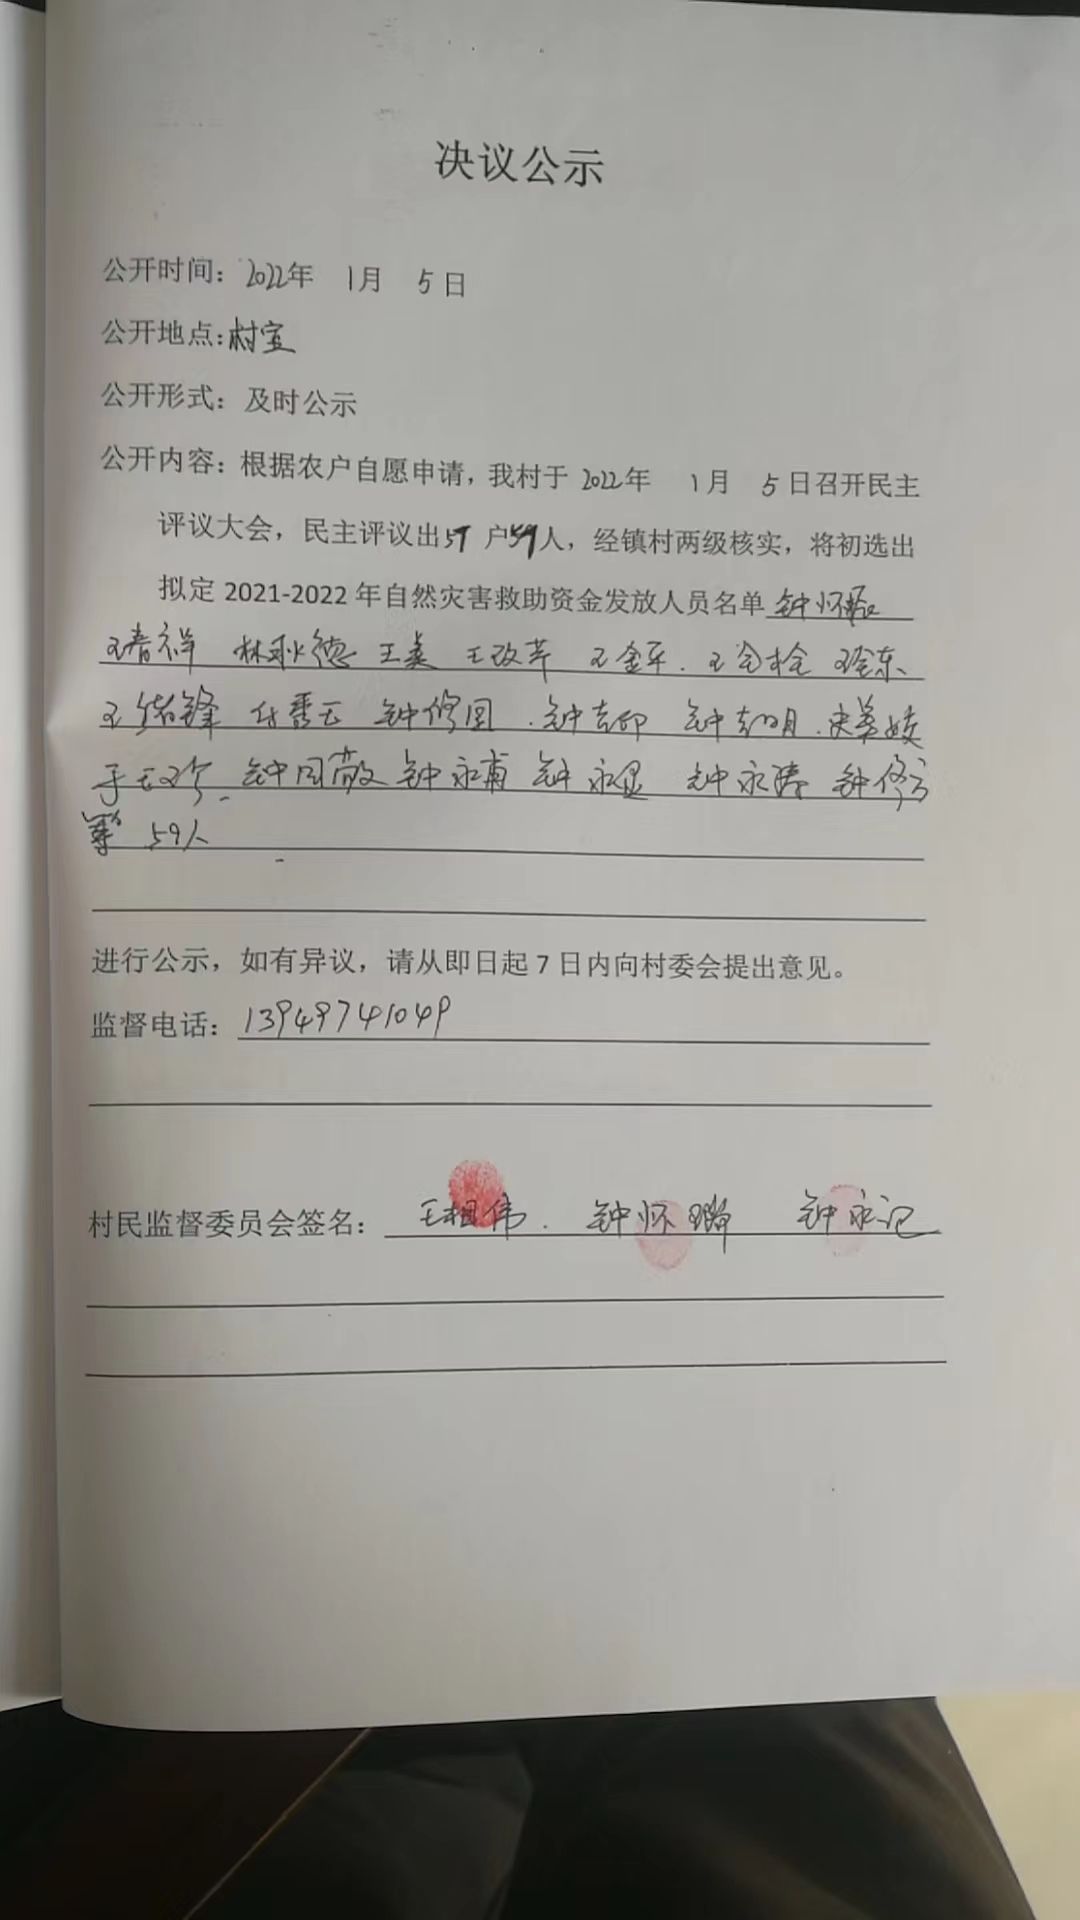 决议公示
公开时间：2022年 1月 5日
公开地点：村室
公开形式：及时公示
公开内容：根据农户自愿申请，我村于 2022年 1月 5日召开民主
评议大会，民主评议出 户59人，经镇村两级核实，将初选出
拟定 2021-2022 年自然灾害救助资金发放人员名单 钟怀
王春祥 林秋德 王美 王改芹 王金平. 王金栓 王金东.
王锋 付秀云 钟修国 . 钟志印 钟志明.
钟同敬 钟永甫 钟永显 钟永涛 钟修
等 59人
进行公示，如有异议，请从即日起 7 日内向村委会提出意见。
监督电话：13949741049
村民监督委员会签名： 王相伟. 钟怀 钟永记